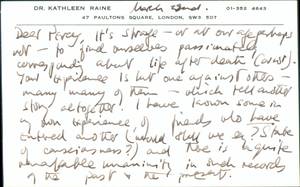 DR. KATHLEEN RAINE
01-352 4643
47 PAULTONS SQUARE, LONDON, SW3 5DT
March 22nd.
Dear Percy, It's strange — at our age perhaps
not — to find ourselves passionately
corresponding about life after death (or not).
Your experience is but one against others —
many many of them — which tell another
story altogether. I have known some in
my own experience of friends who have
entered another (would shall we say?) State
of consciousness?) and there is a quite
remarkable unanimity in such records
of the past & the present.